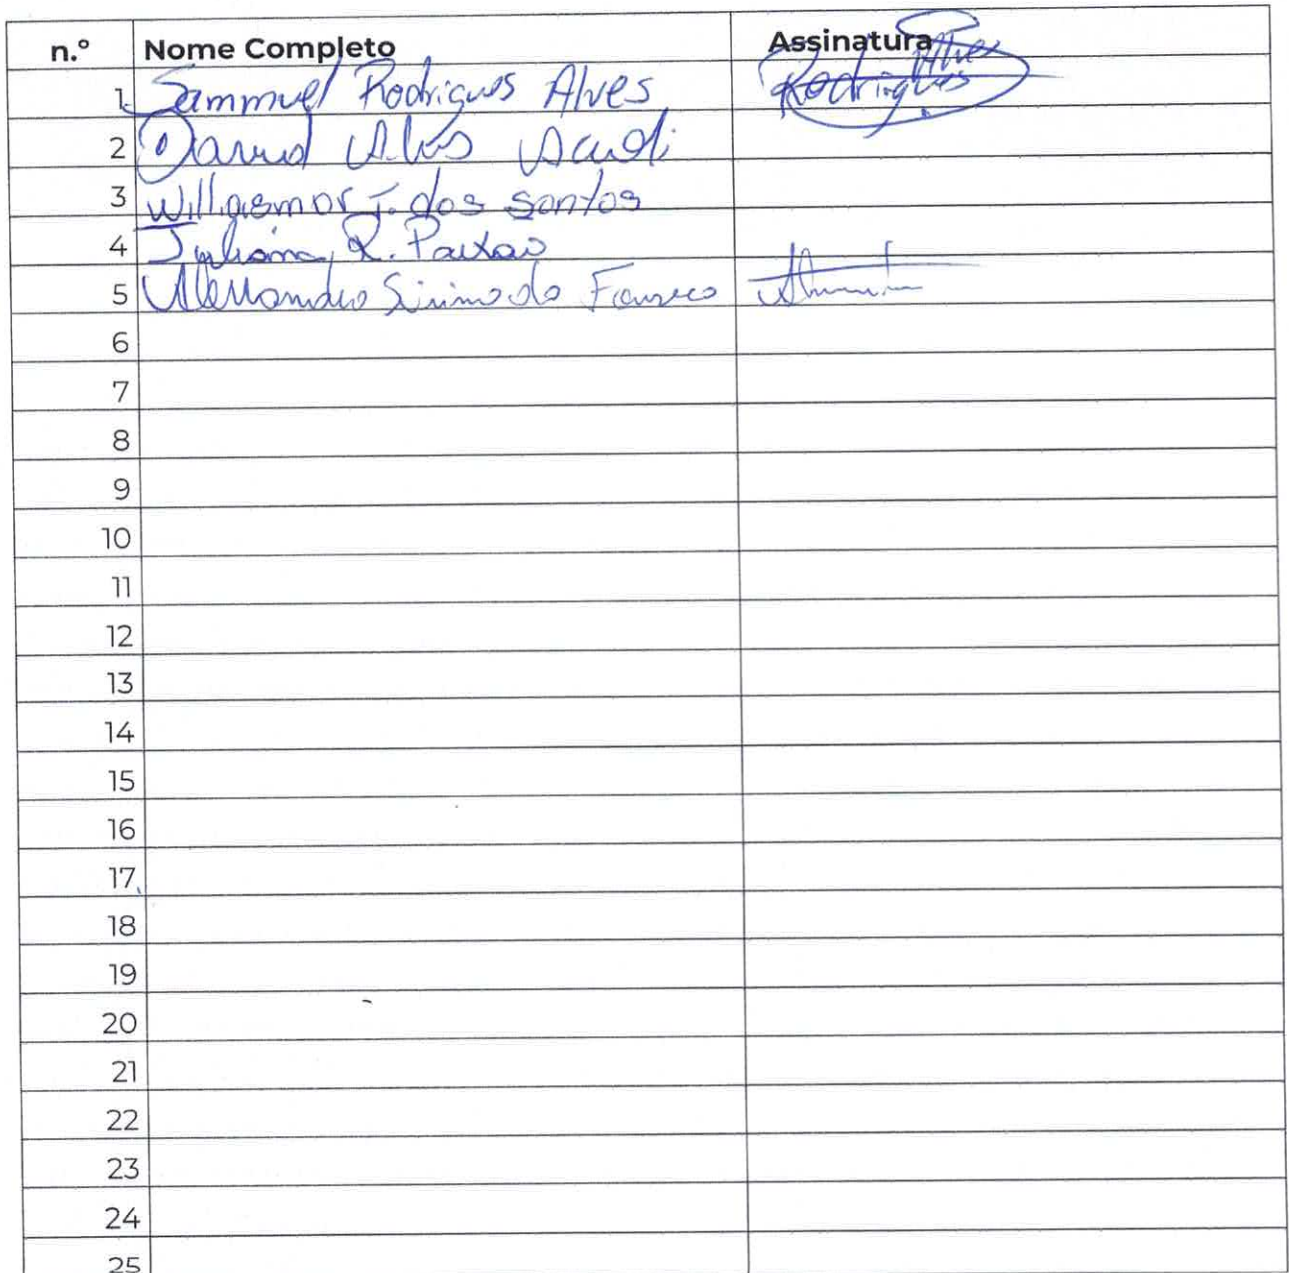 n.º Nome Completo Assinatura
1 Sammuel Rodrigues Alves Rodrigues Alves
2 David Alves
3 Williasmor J. dos Santos
4 Juliana R. Paixao
5 Alessandro da Fonseca
6
7
8
9
10
11
12
13
14
15
16
17
18
19
20
21
22
23
24
25